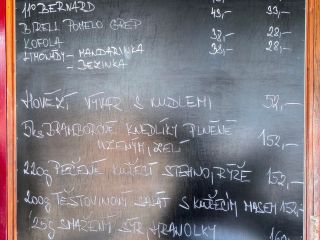 11° BERNARD 43,- 33,-
BIRELL POMELO GREP 38,- 28,-
KOFOLA 38,- 28,-
LIMONÁDY - MANDARINKA
- BEZINKA
HOVĚZÍ VÝVAR S NUDLEMI 52,-
5ks BRAMBOROVÉ KNEDLÍKY PLNĚNÉ
UZENÝM, ZELÍ 152,-
220g PEČENÉ KUŘECÍ STEHNO, RÝŽE 152,-
200g TĚSTOVINOVÝ SALÁT S KUŘECÍM MASEM 152,-
125g SMAŽENÝ SÝR HRANOLKY